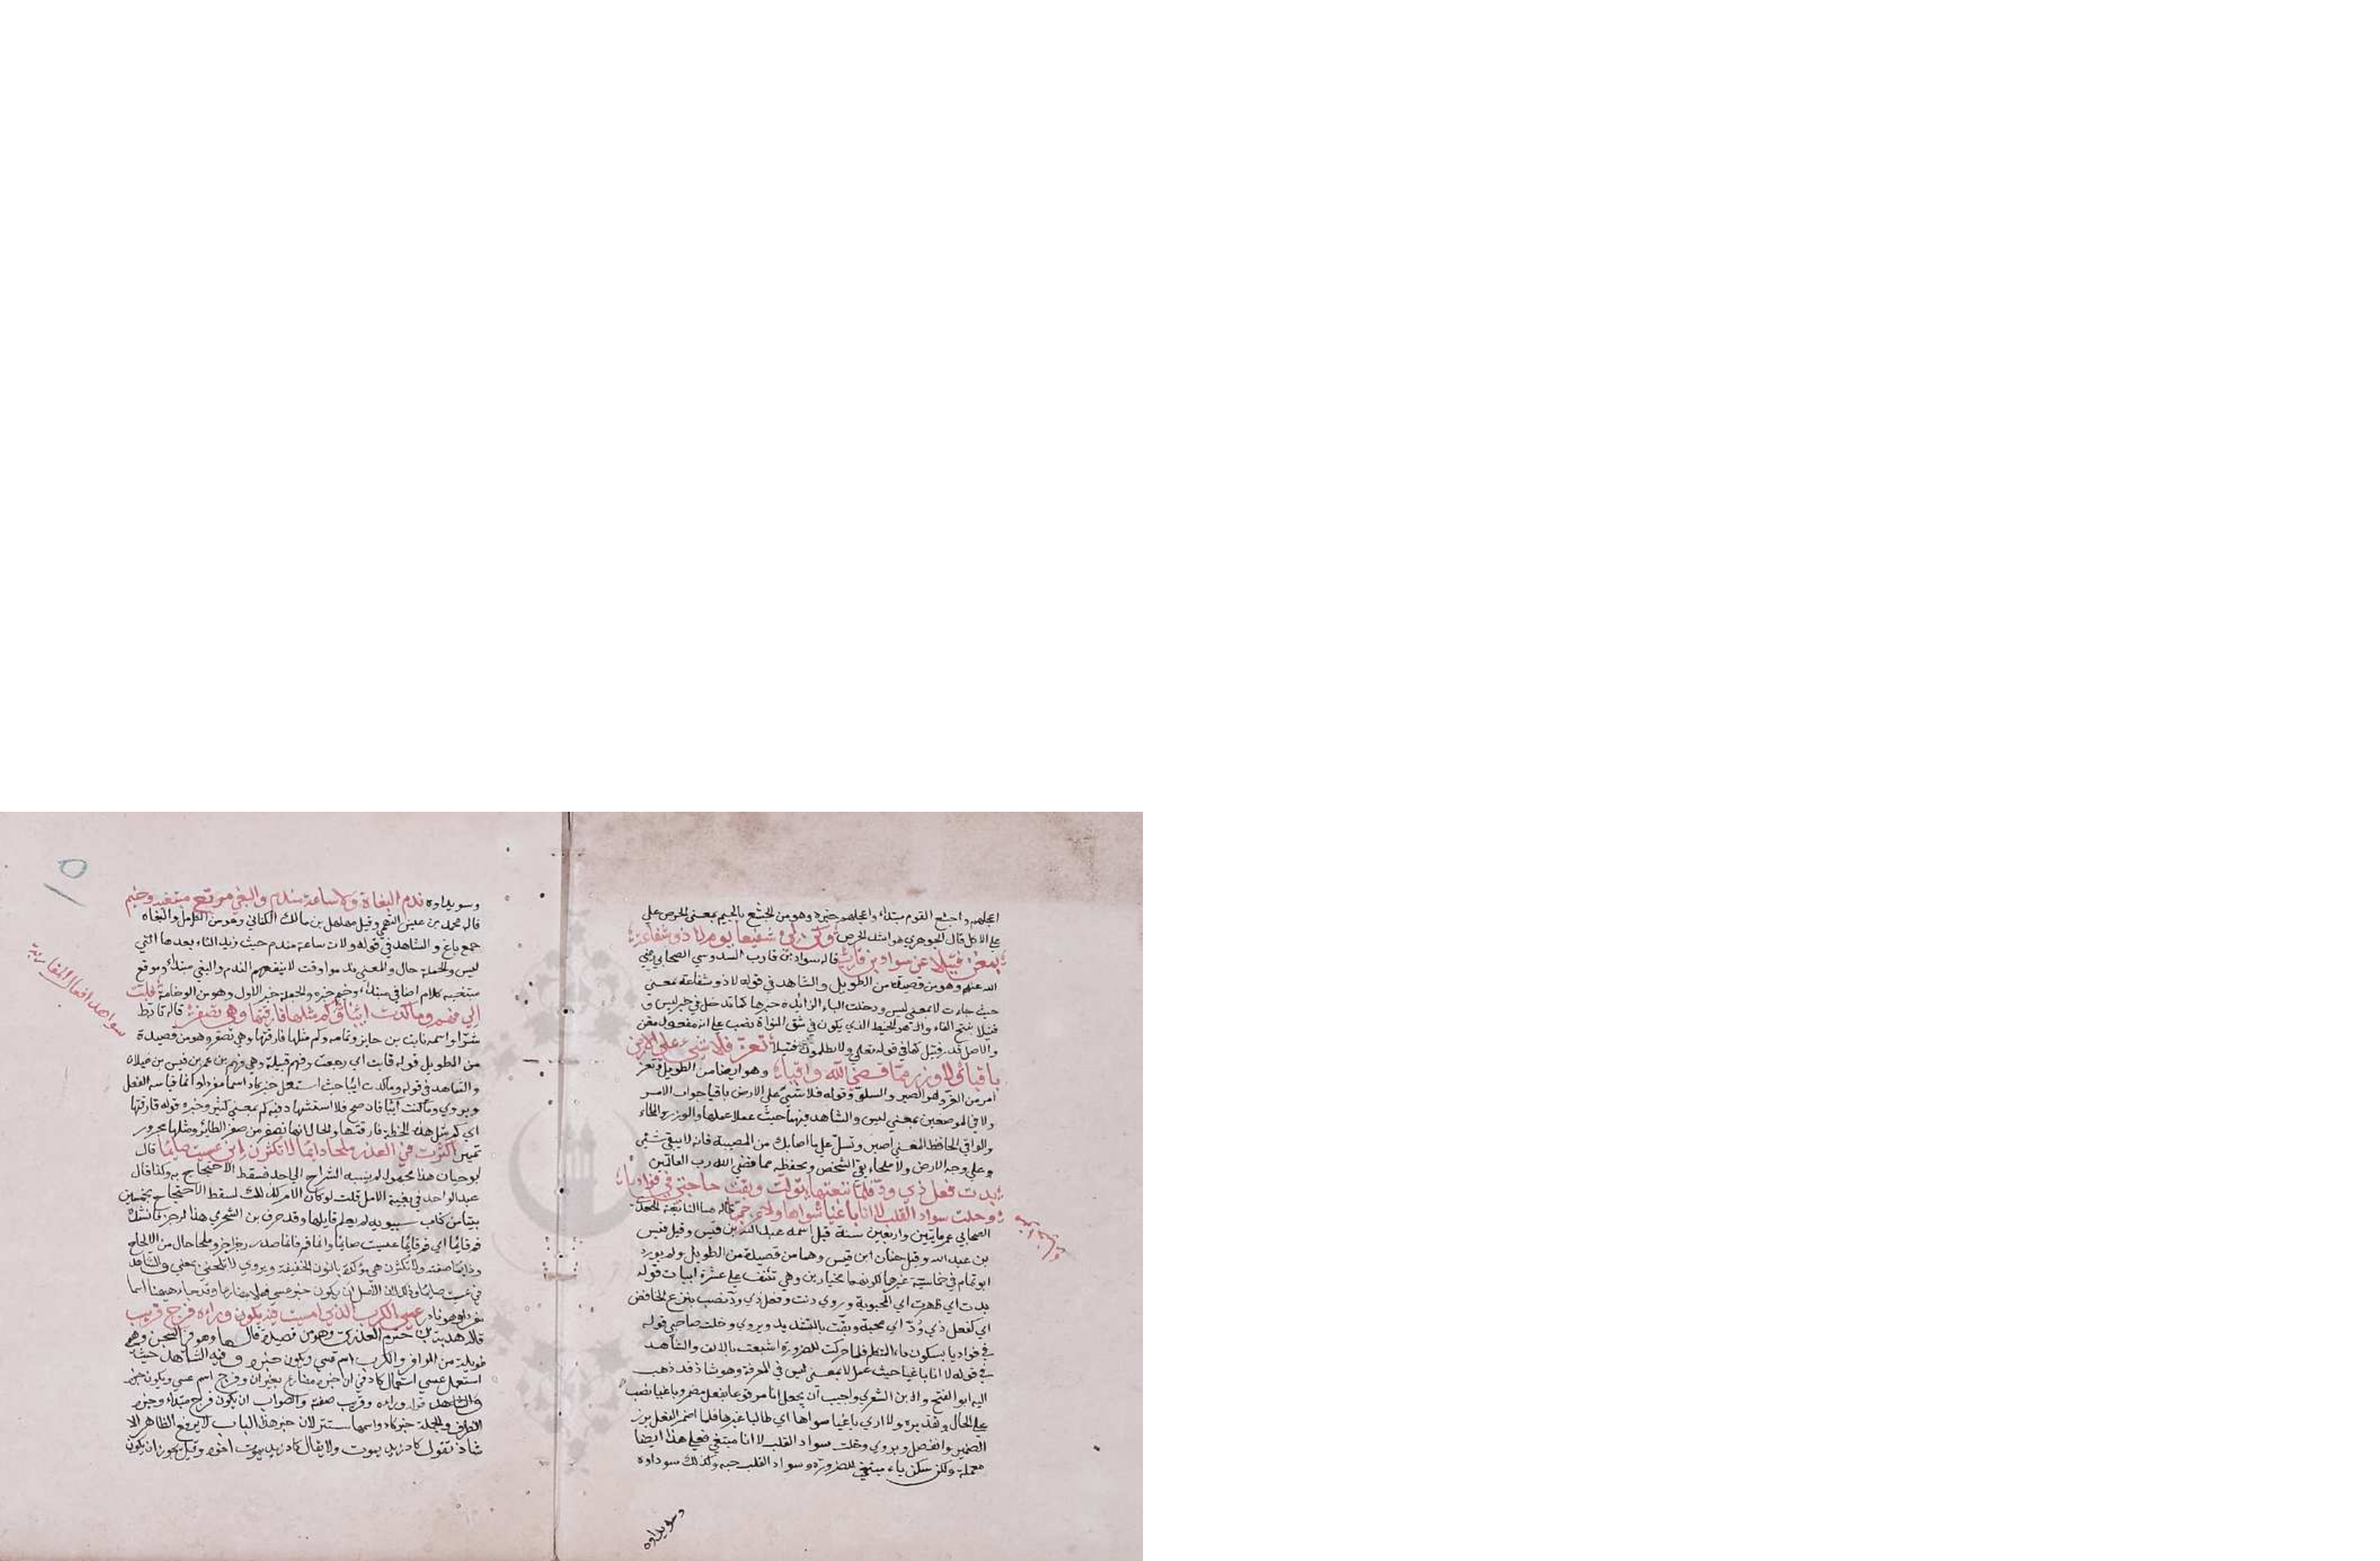 اعجلهم واجشع القوم مبتداء واعجلهم خبره وهو من الجشع بالجيم بمعنى الحرص علي
علي الاكل قال الجوهري هو اشد الحرص وكن لي شفيعا يوم لا ذو شفاعة
بمغن فتيلا عن سواد بن قارب قاله سواد بن قارب السدوسي الصحابي رضي
الله عنه وهو من قصيدة من الطويل والشاهد في قوله لا ذو شفاعة بمعنى
حيث جاءت لا بمعنى ليس ودخلت الباء الزائدة خبرها كما تدخل في خبر ليس و
فتيلا بفتح الفاء والتاء هو الخيط الذي يكون في شق النواة نصب علي انه مفعول مغن
والاصل قدر فتيل كما في قوله تعلي ولا يظلمون فتيلا تعز فلا شيء علي الارض
باقيا ولا وزر مما قضى الله واقيا وهو ايضا من الطويل وتعز
امر من العزو هو الصبر والسلو وقوله فلا شيء علي الارض باقيا جواب الامر
ولا في الموضعين بمعني ليس والشاهد فيهما حيث عملا عملها والوزر الملجاء
والواقي الحافظ المعنى اصبر وتسل علي ما اصابك من المصيبة فانه لا يبقى شي
علي وجه الارض ولا ملجاء يقي الشخص ويحفظه مما قضي الله رب العالمين
بدت فعل ذي ود فلما تبعتها تولت وبقت حاجتي في فواديا
وحلت سواد القلب لا انا باغيا سواها ولا عن حبها قاله هما النابغة الجعدي
الصحابي عمر مايتين واربعين سنة قيل اسمه عبد الله بن قيس وقيل قيس
بن عبد الله وقيل حنان ابن قيس وهما من قصيدة من الطويل ولم يورد
ابو تمام في حماسيته غيرهما لكونهما مختارين وهي تنيف علي عشرة ابيات قوله
بدت اي ظهرت اي المحبوبة وروي دنت وفعل ذي ود نصب بنزع الخافض
اي كفعل ذي ود اي محبة وبقت بالتشديد ويروي وخلت حاجتي قوله
في فواديا بسكون ياء المتكلم فلما حركت للضرورة اشبعت بالالف والشاهد
في قوله لا انا باغيا حيث عمل لا بمعنى ليس في المعرفة وهو شاذ قد ذهب
اليه ابو الفتح وابن الشجري واجيب ان يجعل انا مرفوعا بفعل مضمر وباغيا نصب
علي الحال وتقديره ولا اري باغيا سواها اي طالبا غيرها فلما اضمر الفعل برز
الضمير وانفصل ويروي وحلت سواد القلب لا انا مبتغي فعلي هذا ايضا
معملة ولكن سكن ياء مبتغي للضرورة وسواد القلب حبه وكذلك سوداوه
وسويداوه
وسويداوه ندم البغاة ولات ساعة مندم والبغي مرتع مبتغيه وخيم
قاله محمد بن عيسى التيمي وقيل مهلهل بن مالك الكناني وهو من الكامل والبغاه
جمع باغ والشاهد في قوله ولات ساعة مندم حيث زيد التاء بعدها التي
ليس والجملة حال والمعنى ندموا وقت لا ينفعهم الندم والبغي مبتداء ومرتع
مبتغيه كلام اضافي مبتداء وخيم خبره والجملة خبر الاول وهو من الوخامة فابت
الي فهم وما كدت ايبا وكم مثلها فارقتها وهي تصفر قاله تابط
شرا واسمه ثابت بن جابر وتمامه وكم مثلها فارقتها وهي تصفر وهو من قصيدة
من الطويل قوله فابت اي رجعت وفهم قبيلة وهي فهم بن عمر بن قيس بن عيلان
والشاهد في قوله وما كدت ايبا حيث استعمل خبر كاد اسما مفردا وانما قياسه الفعل
ويروي وما كنت ايبا فان صح فلا استشهاد فيه وكم بمعنى كثير وخبره قوله فارقتها
اي كم مثل هذه الخطة فارقتها والحال انها تصفر من صفر الطائر ومثلها مجرور
تمييز اكثرت في العذل ملحا دايما لا تكثرن اني عسيت صايما قال
ابو حيان هذا مجهول لم ينسبه الشراح الي احد فسقط الاحتجاج به وكذا قال
عبد الواحد في بغية الامل قلت لو كان الامر كذلك لسقط الاحتجاج بخمسين
بيتا من كتاب سيبويه لم يعلم قايلها وقد حرف بن الشجري هذا الرجز فانشده
قم قايما اي قم قايما عسيت صايما وانما قم قائما صدر رجز اخر وملحا حال من الالحاح
ودايما صفته ولا تكثرن هي مؤكدة بالنون الخفيفة ويروي لا تلحني بمعني والشاهد
في عسيت صايما وذلك ان الاصل ان يكون خبر عسى فعلا مضارعا وقد جاء ههنا اسما
مفردا وهو نادر عسى الكرب الذي امسيت فيه يكون وراءه فرج قريب
قاله هدبة بن خشرم العذري وهو من قصيدة قالها وهو في السجن وهي
طويلة من الوافر والكرب اسم عسي ويكون خبره وفيه الشاهد حيث
استعمل عسي استعمال كاد في ان خبره مضارع بغير ان وفرج اسم عسي ويكون خبر
والشاهد قوله وراءه وقريب صفته والصواب ان يكون فرج مبتداء وخبره
الظرف والجملة خبر كاد واسمها مستتر لان خبر هذا الباب لا يرفع الظاهر الا
شاذ تقول كاد زيد يموت ولا يقال كاد زيد يموت اخوه وقيل يجوز ان يكون
شواهد افعال المقاربة